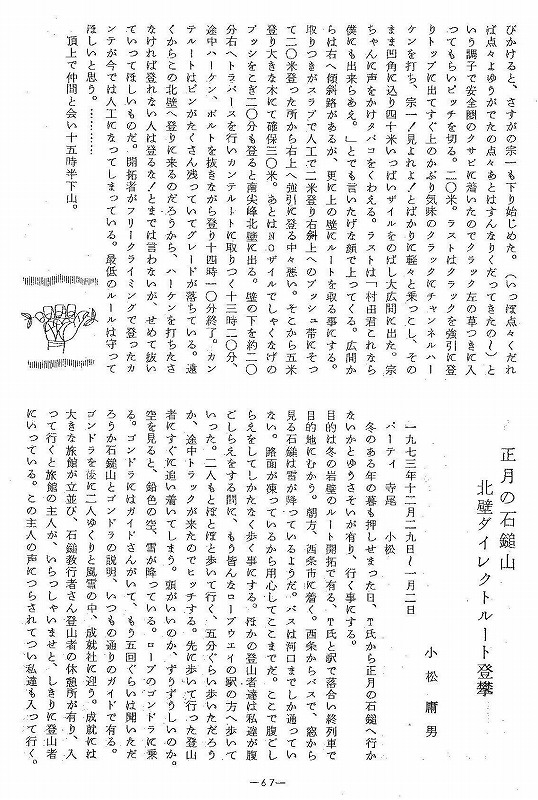 びかけると、さすがの宗一も下り始じめた。(いっぽ点々くだれ
ば点々よゆうがでたの点々あとはすんなりくだってきたの〜)と
いう調子で安全圏のクサビに着いたのでクラック左の草つきに入
ってもらいピッチを切る。二〇米。ラストはクラックを強引に登
りトップに出てすぐ上のかぶり気味のクラックにチャンネルハー
ケンを打ち、宗一!見よれよ!とばかりに軽々と乗っこし、その
まま凹角に込り四十米いっぱいザイルをのばし大広間に出た。宗
ちゃんに声をかけタバコをくわえる。ラストは「村田君これなら
僕にも出来らあえ。」とでも言いたげな顔で上ってくる。広間か
らは右へ傾斜路があるが、更に上の壁にルートを取る事にする。
取りつきがスラブで人工で二米登り右斜上へのブッシュ帯にそっ
て二〇米登った所から右上へ強引に登る中々悪い。そこから五米
登り大きな木にて確保三〇米。あとはNOザイルでしゃくなげの
ブッシをこぎ二〇分も登ると南尖峰北壁に出る。壁の下を約二〇
分右へトラバースを行いカンテルートに取りつく十三時二〇分、
途中ハーケン、ボルトを抜きながら登り十四時一〇分終了。カン
テルートはピンがたくさん残っていてグレードが落ちている。遠
くからこの北壁へ登りに来るのだろうから、ハーケンを打ちたさ
なければ登れない人は登るな!とまでは言わないが、せめて抜い
ていってほしいものだ。開拓者がフリークライミングで登ったカ
ンテが今では人工になってしまっている。最低のルールは守って
ほしいと思う。…………
頂上で仲間と会い十五時半下山。
正月の石鎚山
北壁ダイレクトルート登攀
小松庸男
一九七三年十二月二九日〜一月二日
パーティ 寺尾 小松
冬のある年の暮も押しせまった日、T氏から正月の石鎚へ行か
ないかとゆうさそいが有り、行く事にする。
目的は冬の岩壁のルート開拓で有る、T氏と駅で落合い終列車で
目的地にむかう。朝方、西条市に着く。西条からバスで、窓から
見る石鎚は雪が降っているようだ。バスは河口までしか通ってい
ない。路面が凍っているから用心してここまでだ。ここで腹ごし
らえをしてしかたなく歩く事にする。ほかの登山者達は私達が腹
ごしらえをする間に、もう皆んなロープウエイの駅の方へ歩いて
いった。二人もとぼとぼと歩いて行く、五分ぐらい歩いただろう
か、途中トラックが来たのでヒッチする。先に歩いて行った登山
者にすぐに追い着いてしまう。頭がいいのか、ずうずうしいのか。
空を見ると、鉛色の空、雪が降っている。ロープのゴンドラに乗
る。ゴンドラにはガイドさんがいて、もう五回ぐらいは聞いただ
ろうか石鎚山とゴンドラの説明、いつもの通りのガイドで有る。
ゴンドラを後に二人ゆくりと風雪の中、成就社に迎う。成就には
大きな旅館が立並び、石鎚教行者さん登山者の休憩所が有り、入
って行くと旅館の主人が、いらっしゃいませと、しきりに登山者
にいっている。この主人の声につらされてつい私達も入って行く。
—67—